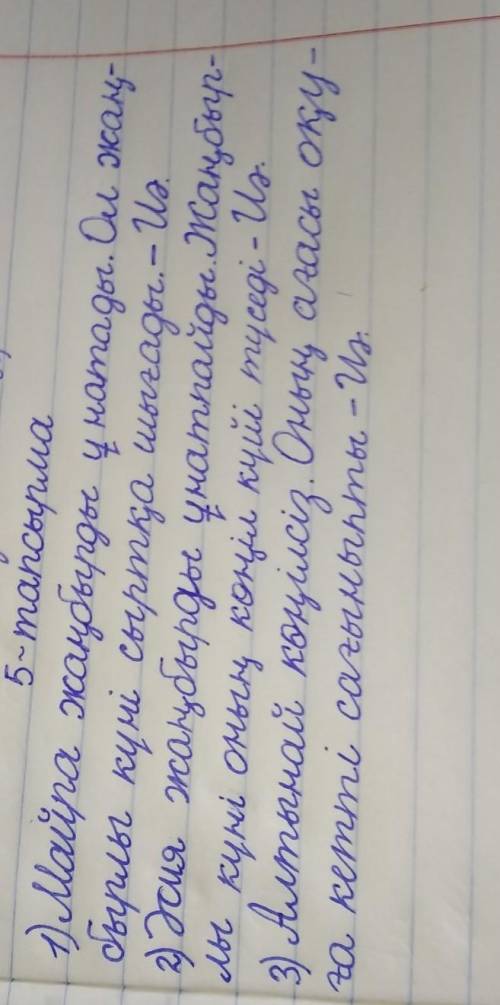 5-тапсырма
1) Майра жаңбырды ұнатады. Ол жаң-
бырлы күні сыртқа шығады. - Иә.
2) Әсия жаңбырды ұнатпайды. Жаңбыр-
лы күні оның көңіл күйі түседі - Иә.
3) Алтынай көңілсіз. Оның ағасы оқу-
ға кетті сағыныпты - Иә.